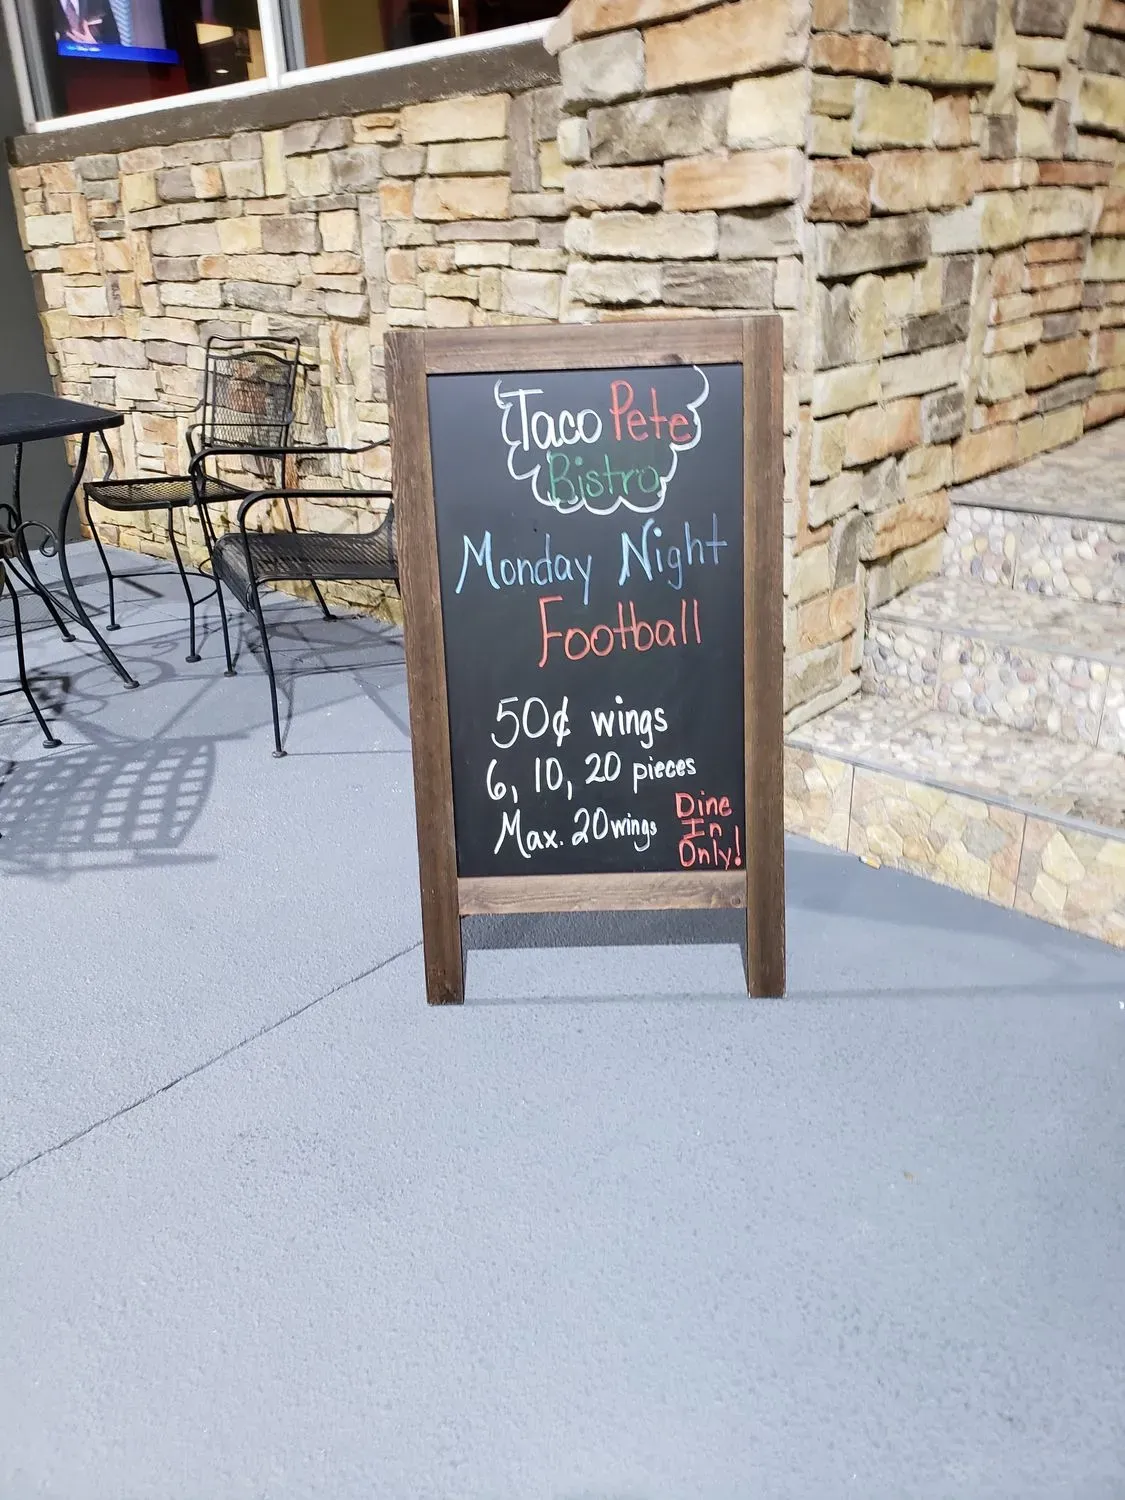 Taco Pete
Bistro
Monday Night
Football
50¢ wings
6, 10, 20 pieces
Max. 20 wings
Dine
In
Only!